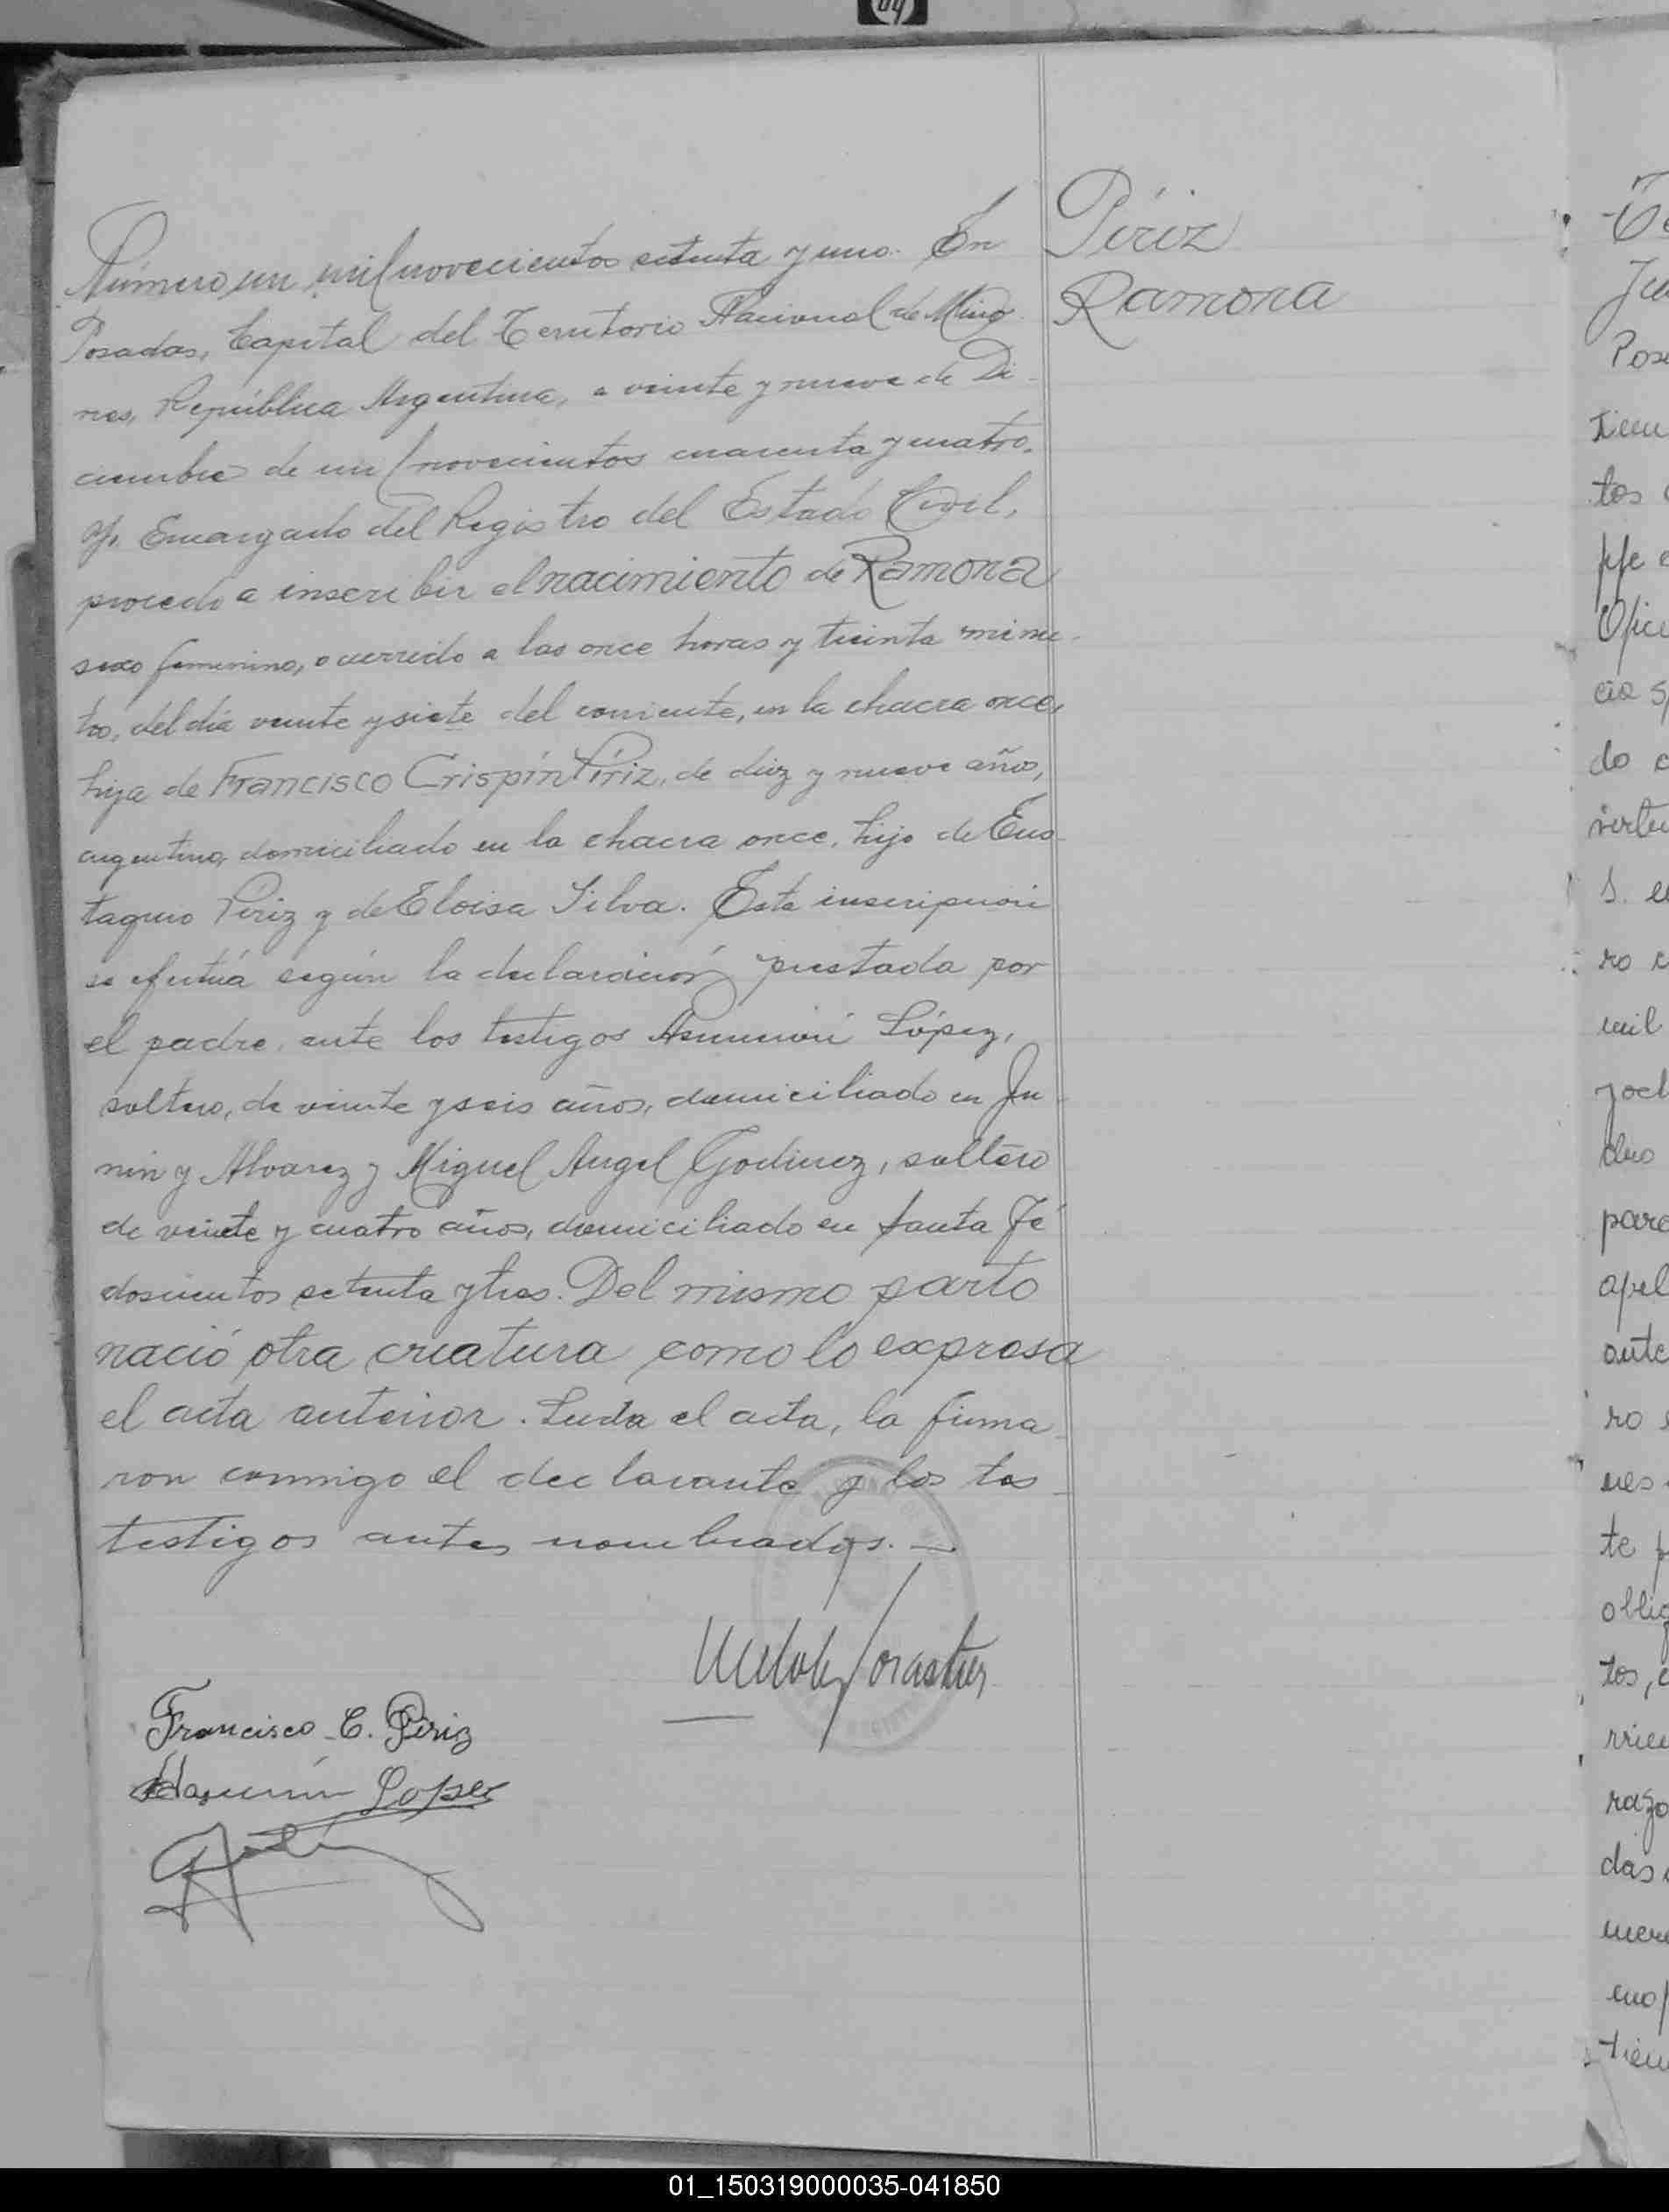 Número un mil novecientos setenta y uno. En
Posadas, Capital del Territorio Nacional de Misio
nes, República Argentina, a veinte y nueve de Di
ciembre de mil novecientos cuarenta y cuatro,
yo, Encargado del Registro del Estado Civil,
procedo a inscribir el nacimiento de Ramona
sexo femenino, ocurrido a las once horas y treinta minu
tos, del día veinte y siete del corriente, en la chacra once,
hija de Francisco Crispín Píriz, de diez y nueve años,
argentino, domiciliado en la chacra once, hijo de Eus
taquio Píriz y de Eloisa Silva. Esta inscripción
se efectúa según la declaración prestada por
el padre, ante los testigos Asunción López,
soltero, de veinte y seis años, domiciliado en Ju
nín y Alvarez y Miguel Angel Godinez, soltero
de veinte y cuatro años, domiciliado en Santa Fé
doscientos setenta y tres. Del mismo parto
nació otra criatura como lo expresa
el acta anterior. Leida el acta, la firma
ron conmigo el declarante y los tes
testigos antes nombrados. —
Francisco C. Píriz
Asunción Lopez
Píriz
Ramona
Pos
tos
do
mil
para
apel
ante
ro
te
tos,
razo
das
01_150319000035-041850